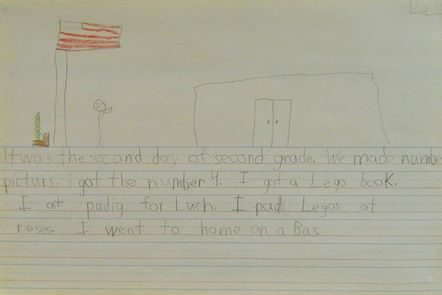 It was the second day of second grade. We made number
picturs. i got the number 4. I got a Lego book.
I at pudig for Luch. I pad Legos at
roses. I went to home on a Bus